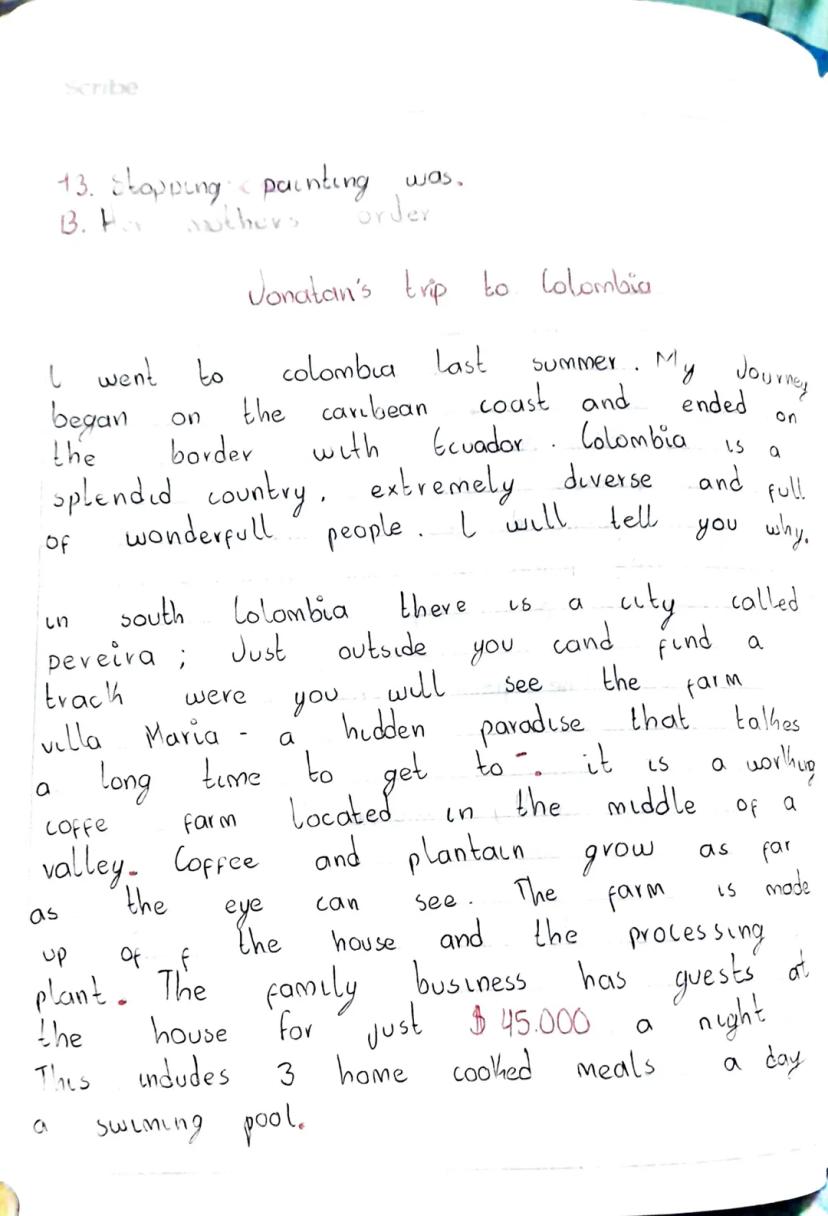 Scribe
13. Stopping painting was.
B. order
Jonatan's trip to Colombia
I went to colombia last summer. My Journey
began on the caribean coast and ended on
the border with Ecuador. Colombia is a
splendid country, extremely diverse and full
of wonderfull people. I will tell you why.
in south Colombia there is a city called
pereira; Just outside you cand find a
track were you will see the farm
villa Maria - a hidden paradise that talkes
a long time to get to -. it is a working
coffe farm located in the middle of a
valley. Coffee and plantain grow as far
as the eye can see. The farm is made
up of f the house and the processing
plant. The family business has guests at
the house for just $ 45.000 a night
This indudes 3 home cooked meals a day
a swiming pool.